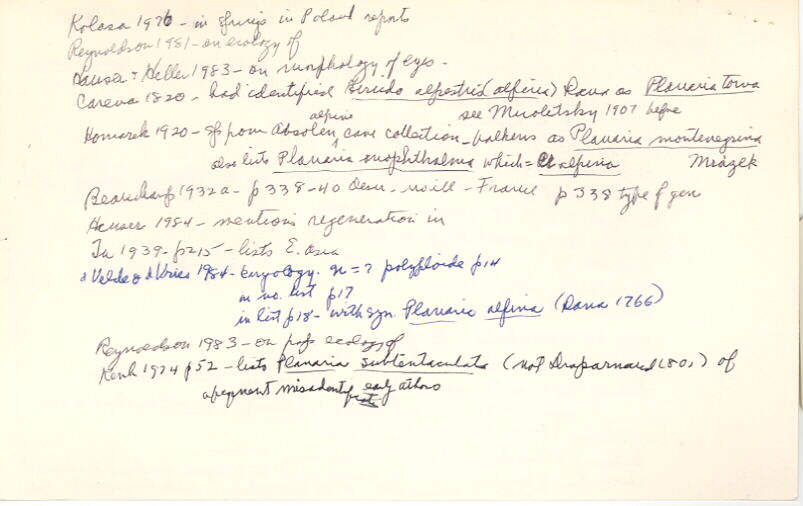 Kolasa 1976 - in springs in Poland reports
Reynoldson 1981 - on ecology of
Hauser & Heller 1983 - on morphology of eyes -
Carena 1820 - had identified alpestris (alpina) Dana as Planaria torva
see Muroletsky 1907 before
alpine
Komarek 1920 - sps from Absolen cave collection - Balkans as Planaria montenegrina
also lists Planaria anophthalma which = alpina Mrázek
Beauchamp 1932a - p 338-40 Desc. no ill - France p 338 type of gen
Hauser 1984 - mentions regeneration in
Tu 1939 - p215 - lists E. Asia
d Velde & d Vries 1984 - karyology. n = 7 polyploide p14
in no. list p17
in list p18 - with syn. Planaria alpina (Dana 1766)
Reynoldson 1983 - on ecology of
Kenk 1974 p52 - lists Planaria subtentaculata (not Draparnaud 1801) of
apparent misidentif early authors